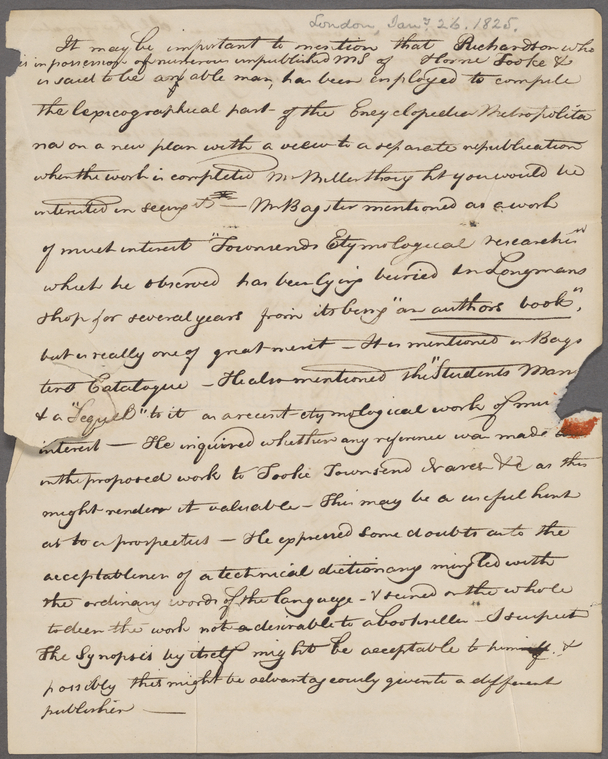 London, Jany. 26. 1825.
It may be important to mention that Richardson who
is in possession of numerous unpublished MS of Horne Tooke &
is said to be an able man, has been employed to compile
the lexicographical part of the Encyclopedia Metropolita
na on a new plan with a view to a separate republication
when the work is completed Mr Miller thought you would be
interested in seeing it — Mr Bagster mentioned as a work
of much interest "Townsends Etymological researches"
which he observed has been lying buried in Longmans
shop for several years from its being "an authors book",
but is really one of great merit — It is mentioned in Bags
ters Catalogue — He also mentioned the "Students Man
& a "Sequel" to it as a recent etymological work of mu
interest — He inquired whether any reference was made
in the proposed work to Tooke Townsend Nares &c as this
might render it valuable — This may be a useful hint
as to a prospectus — He expressed some doubts as to the
acceptableness of a technical dictionary mingled with
the ordinary words of the language — & seemed on the whole
to deem the work not desirable to a bookseller — I suspect
the Synopsis by itself might be acceptable to him &
possibly this might be advantageously given to a different
publisher —